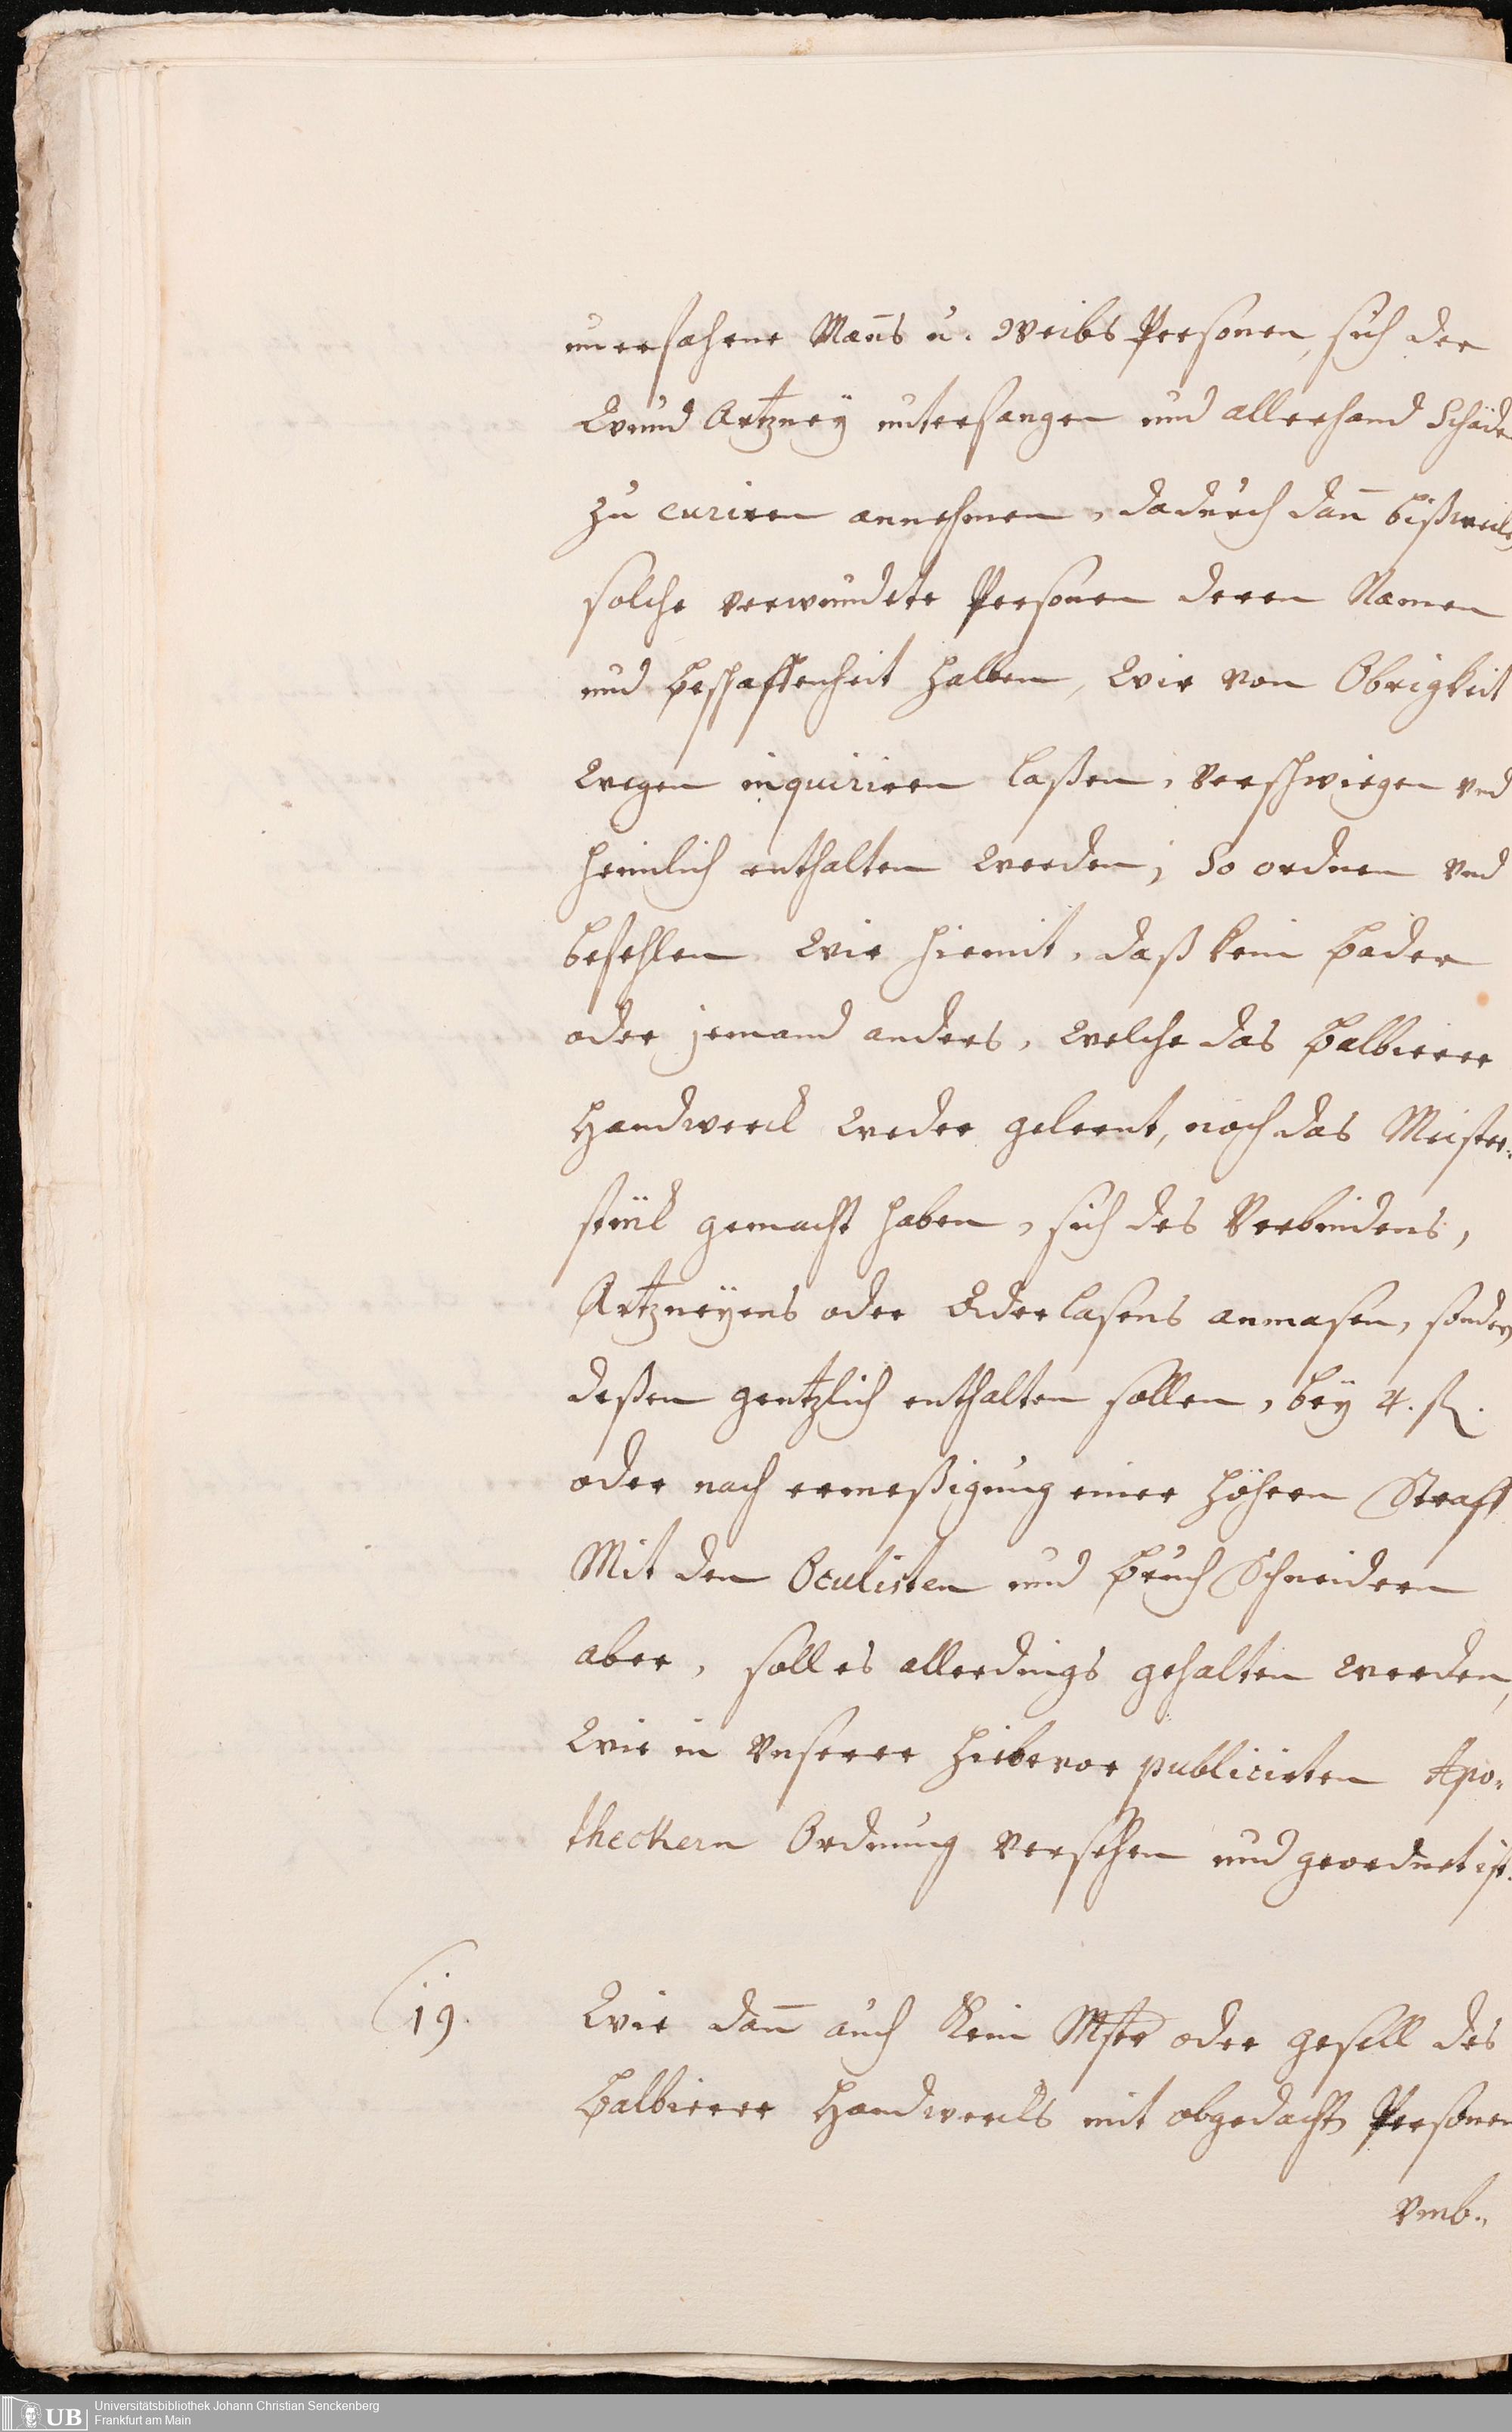 unerfahrne Mañs u. Weibs Personen, sich der
Wund Artzneÿ unterfangen und allerhand Schäde
zu curiren annehmen, dadurch dañ bißweilen
solche verwundete Personen deren Namen
und beschaffenheit halben, Wir von Obrigkeit
Wegen inquiriren laßen, verschwiegen vnd
heimlich enthalten werden; So ordnen vnd
befehlen Wir hiemit, daß kein bader
oder jemand anders, Welche das balbierer
Handwerck Weder gelernt, noch das Meister:
stück gemacht haben, sich des Verbindens,
Artzneÿens oder Aderlasens anmasen, sondern
deßen gentzlich enthalten sollen, beÿ 4. fl.
oder nach ermeßigung einer höhern Straff
Mit den Oculisten und bruch Schneidern
aber, soll es allerdings gehalten werden,
Wie in Vnserer hiebevor publicirten Apo-
theckern Ordnung versehen und geordnet ist.
19.
Wie dañ auch Kein Mstr oder gesell des
balbierer Handwercks mit obgedachten Personen
Vmb-
UB
Universitätsbibliothek Johann Christian Senckenberg
Frankfurt am Main